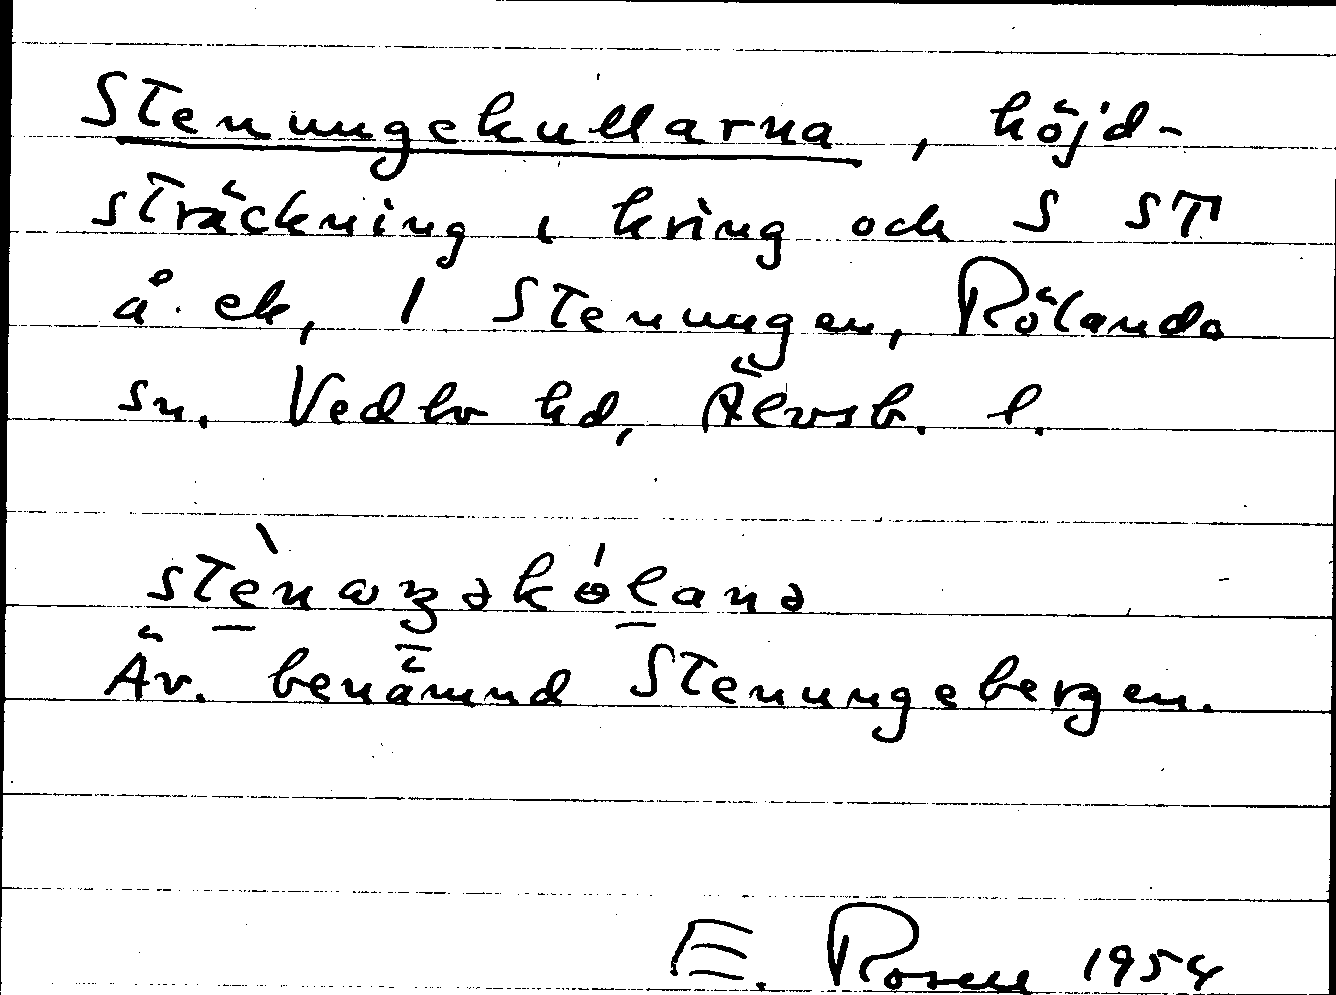 Stenungekullarna, höjd-
sträckning i kring och S ST
å. ek, I Stenungen, Rölanda
sn. Vedbo hd, Älvsb. l.
stènaŋəkólanə
Äv. benämnd Stenungebergen.
E. Rosen 1954